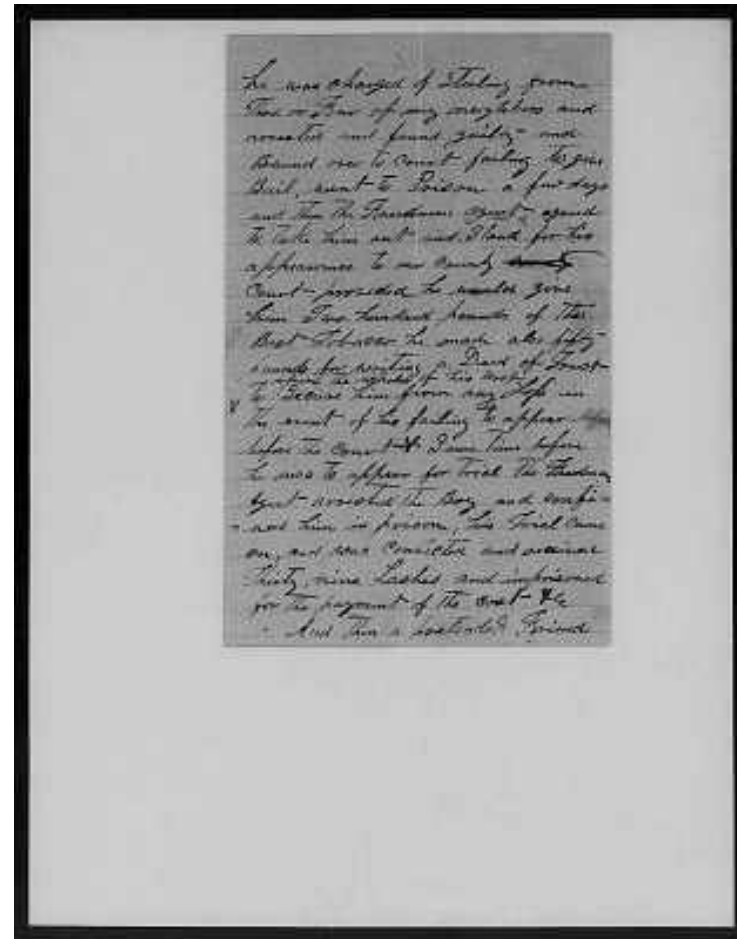 he was charged of Stealing from
Two or Four of my neighbors and
arrested and found guilty and
Bound over to Court failing to give
Bail, went to Prison a few days
and then the Freedmens agent agreed
to take him out and Stand for his
appearance to our County
Court provided he would give
him Two hundred pounds of the
Best Tobacco he made also fifty
pounds for writing Deed of Trust
to Secure him from any Loss in
the event of his failing to appear
before the Court & Some time before
he was to appear for Trial the Freedmens
Agent arrested the Boy and confi-
ned him in prison, his Trial came
on, and was Convicted and
Thirty nine Lashes and imprisoned
for the payment of the Cost &c
And Then a pretended Friend